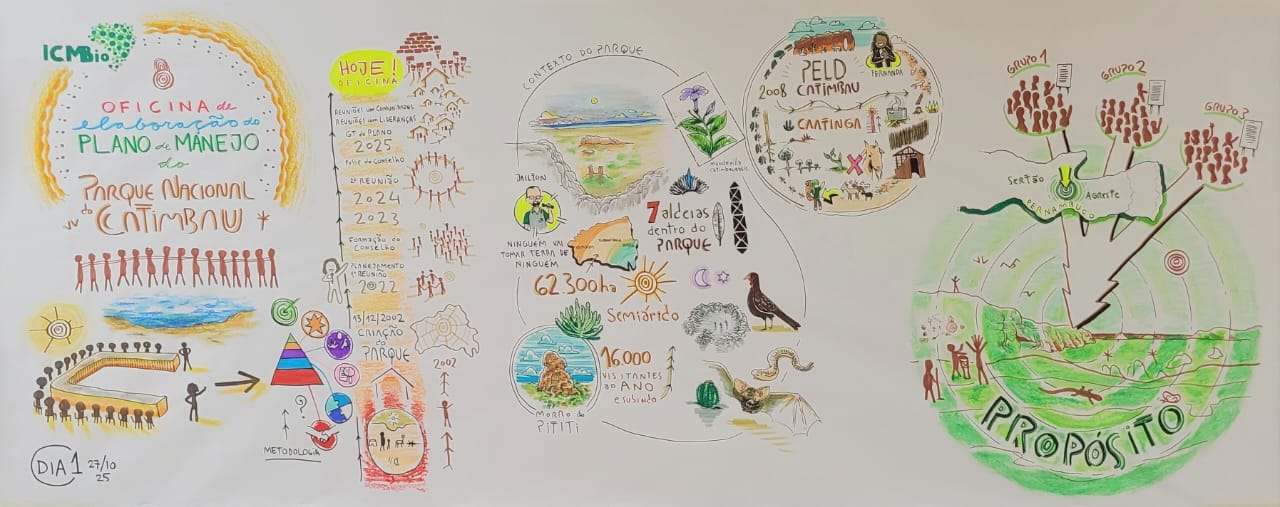 ICMBio
OFICINA de
elaboração do
PLANO de MANEJO
do
PARQUE NACIONAL
do
CATIMBAU
DIA 1 27/10
25
METODOLOGIA
?
HOJE!
OFICINA
REUNIÕES com COMUNIDADES
REUNIÕES com LIDERANÇAS
GT do PLANO
2025
Posse do Conselho
2ª REUNIÃO
2024
2023
Formação do
CONSELHO
PLANEJAMENTO
1ª REUNIÃO
2022
13/12/2002
CRIAÇÃO
do
PARQUE
2002
CONTEXTO DO PARQUE
JAILTON
NINGUEM VAI
TOMAR TERRA DE
NINGUÉM
7 aldeias
dentro do
PARQUE
62300ha
Semiárido
16.000
VISITANTES
ao ANO
e subindo
MORRO do
PITITI
2008
PELD
CATIMBAU
FERNANDA
CAATINGA
GRUPO 1
GRUPO 2
GRUPO 3
SERTÃO
AGRESTE
PERNAMBUCO
PROPÓSITO